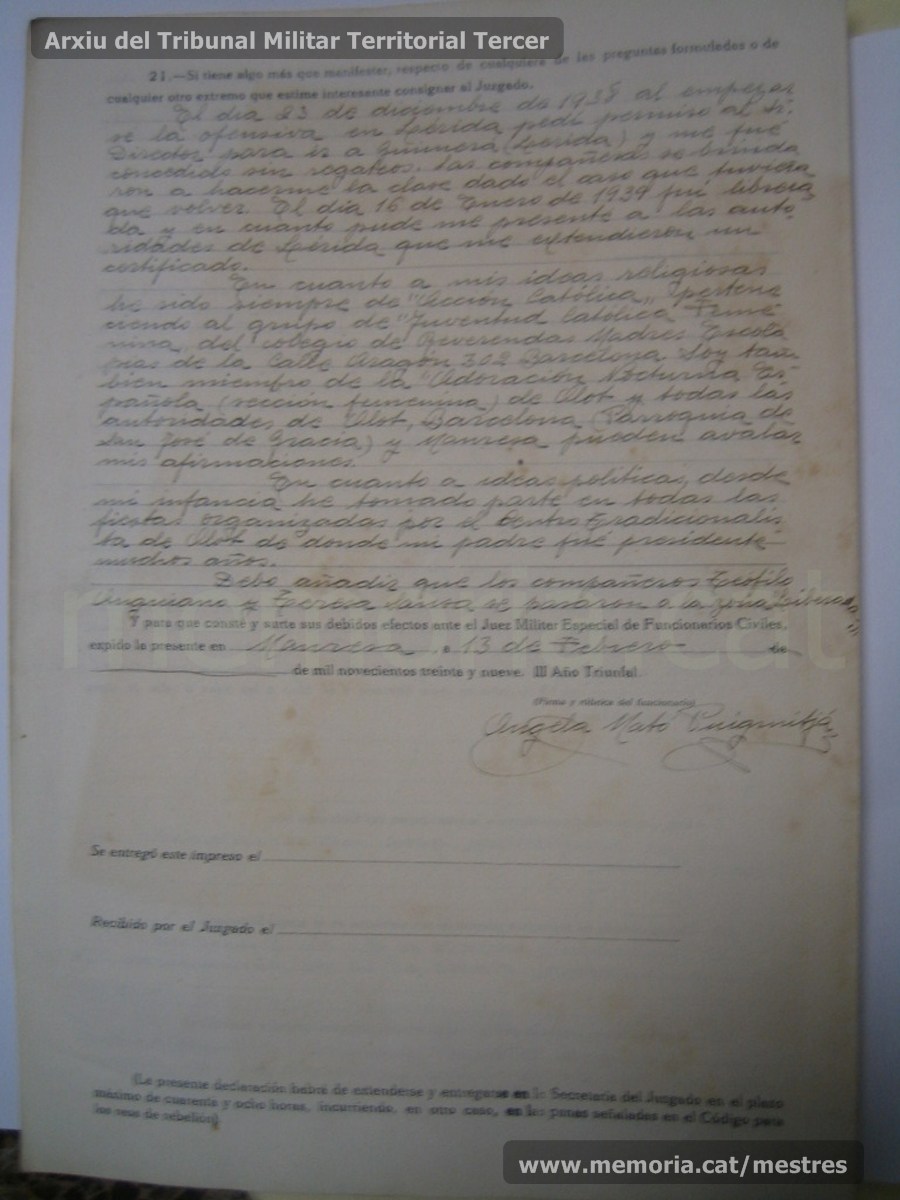 Arxiu del Tribunal Militar Territorial Tercer
21.—Si tiene algo más que manifestar, respecto de cualquiera de las preguntas formuladas o de
cualquier otro extremo que estime interesante consignar al Juzgado.
El día 23 de diciembre de 1938 al empezar
se la ofensiva en Lérida pedí permiso al Sr.
Director para ir a Guimera (Lérida) y me fué
concedido sin regateos. Las compañeras se brinda
ron a hacerme la clase dado el caso que tuviera
que volver. El día 16 de Enero de 1939 fuí libera
da y en cuanto pude me presente a las auto
ridades de Lérida que me extendieron un
certificado.
En cuanto a mis ideas religiosas
he sido siempre de "Acción Católica" pertene
ciendo al grupo de "Juventud Católica Feme
nina" del colegio de Reverendas Madres Escola
pias de la Calle Aragón 302 Barcelona. Soy tam
bién miembro de la Adoración Nocturna Es
pañola (sección femenina) de Olot y todas las
autoridades de Olot, Barcelona (Parroquia de
San José de Gracia) y Manresa pueden avalar
mis afirmaciones.
En cuanto a ideas políticas, desde
mi infancia he tomado parte en todas las
fiestas organizadas por el Centro Tradicionalis
ta de Olot de donde mi padre fué presidente
muchos años.
Debo añadir que los compañeros Teófilo
Anguiano y Teresa se pasaron a la zona "liberada"
Y para que conste y surta sus debidos efectos ante el Juez Militar Especial de Funcionarios Civiles,
expido la presente en Manresa a 13 de Febrero de
de mil novecientos treinta y nueve. III Año Triunfal.
(Firma y rúbrica del funcionario)
Angela Mató Puigmitjà
Se entregó este impreso el
Recibido por el Juzgado el
(La presente declaración habrá de extenderse y entregarse en la Secretaría del Juzgado en el plazo
máximo de cuarenta y ocho horas, incurriendo, en otro caso, en las penas señaladas en el Código para
los reos de rebelión)
www.memoria.cat/mestres